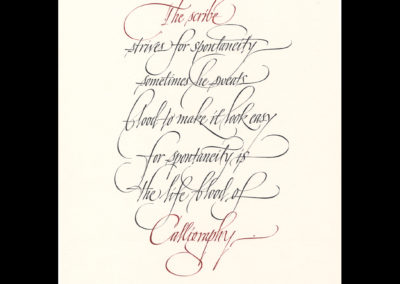 The scribe
strives for spontaneity
sometimes he sweats
blood to make it look easy
for spontaneity is
the life blood of
Calligraphy.